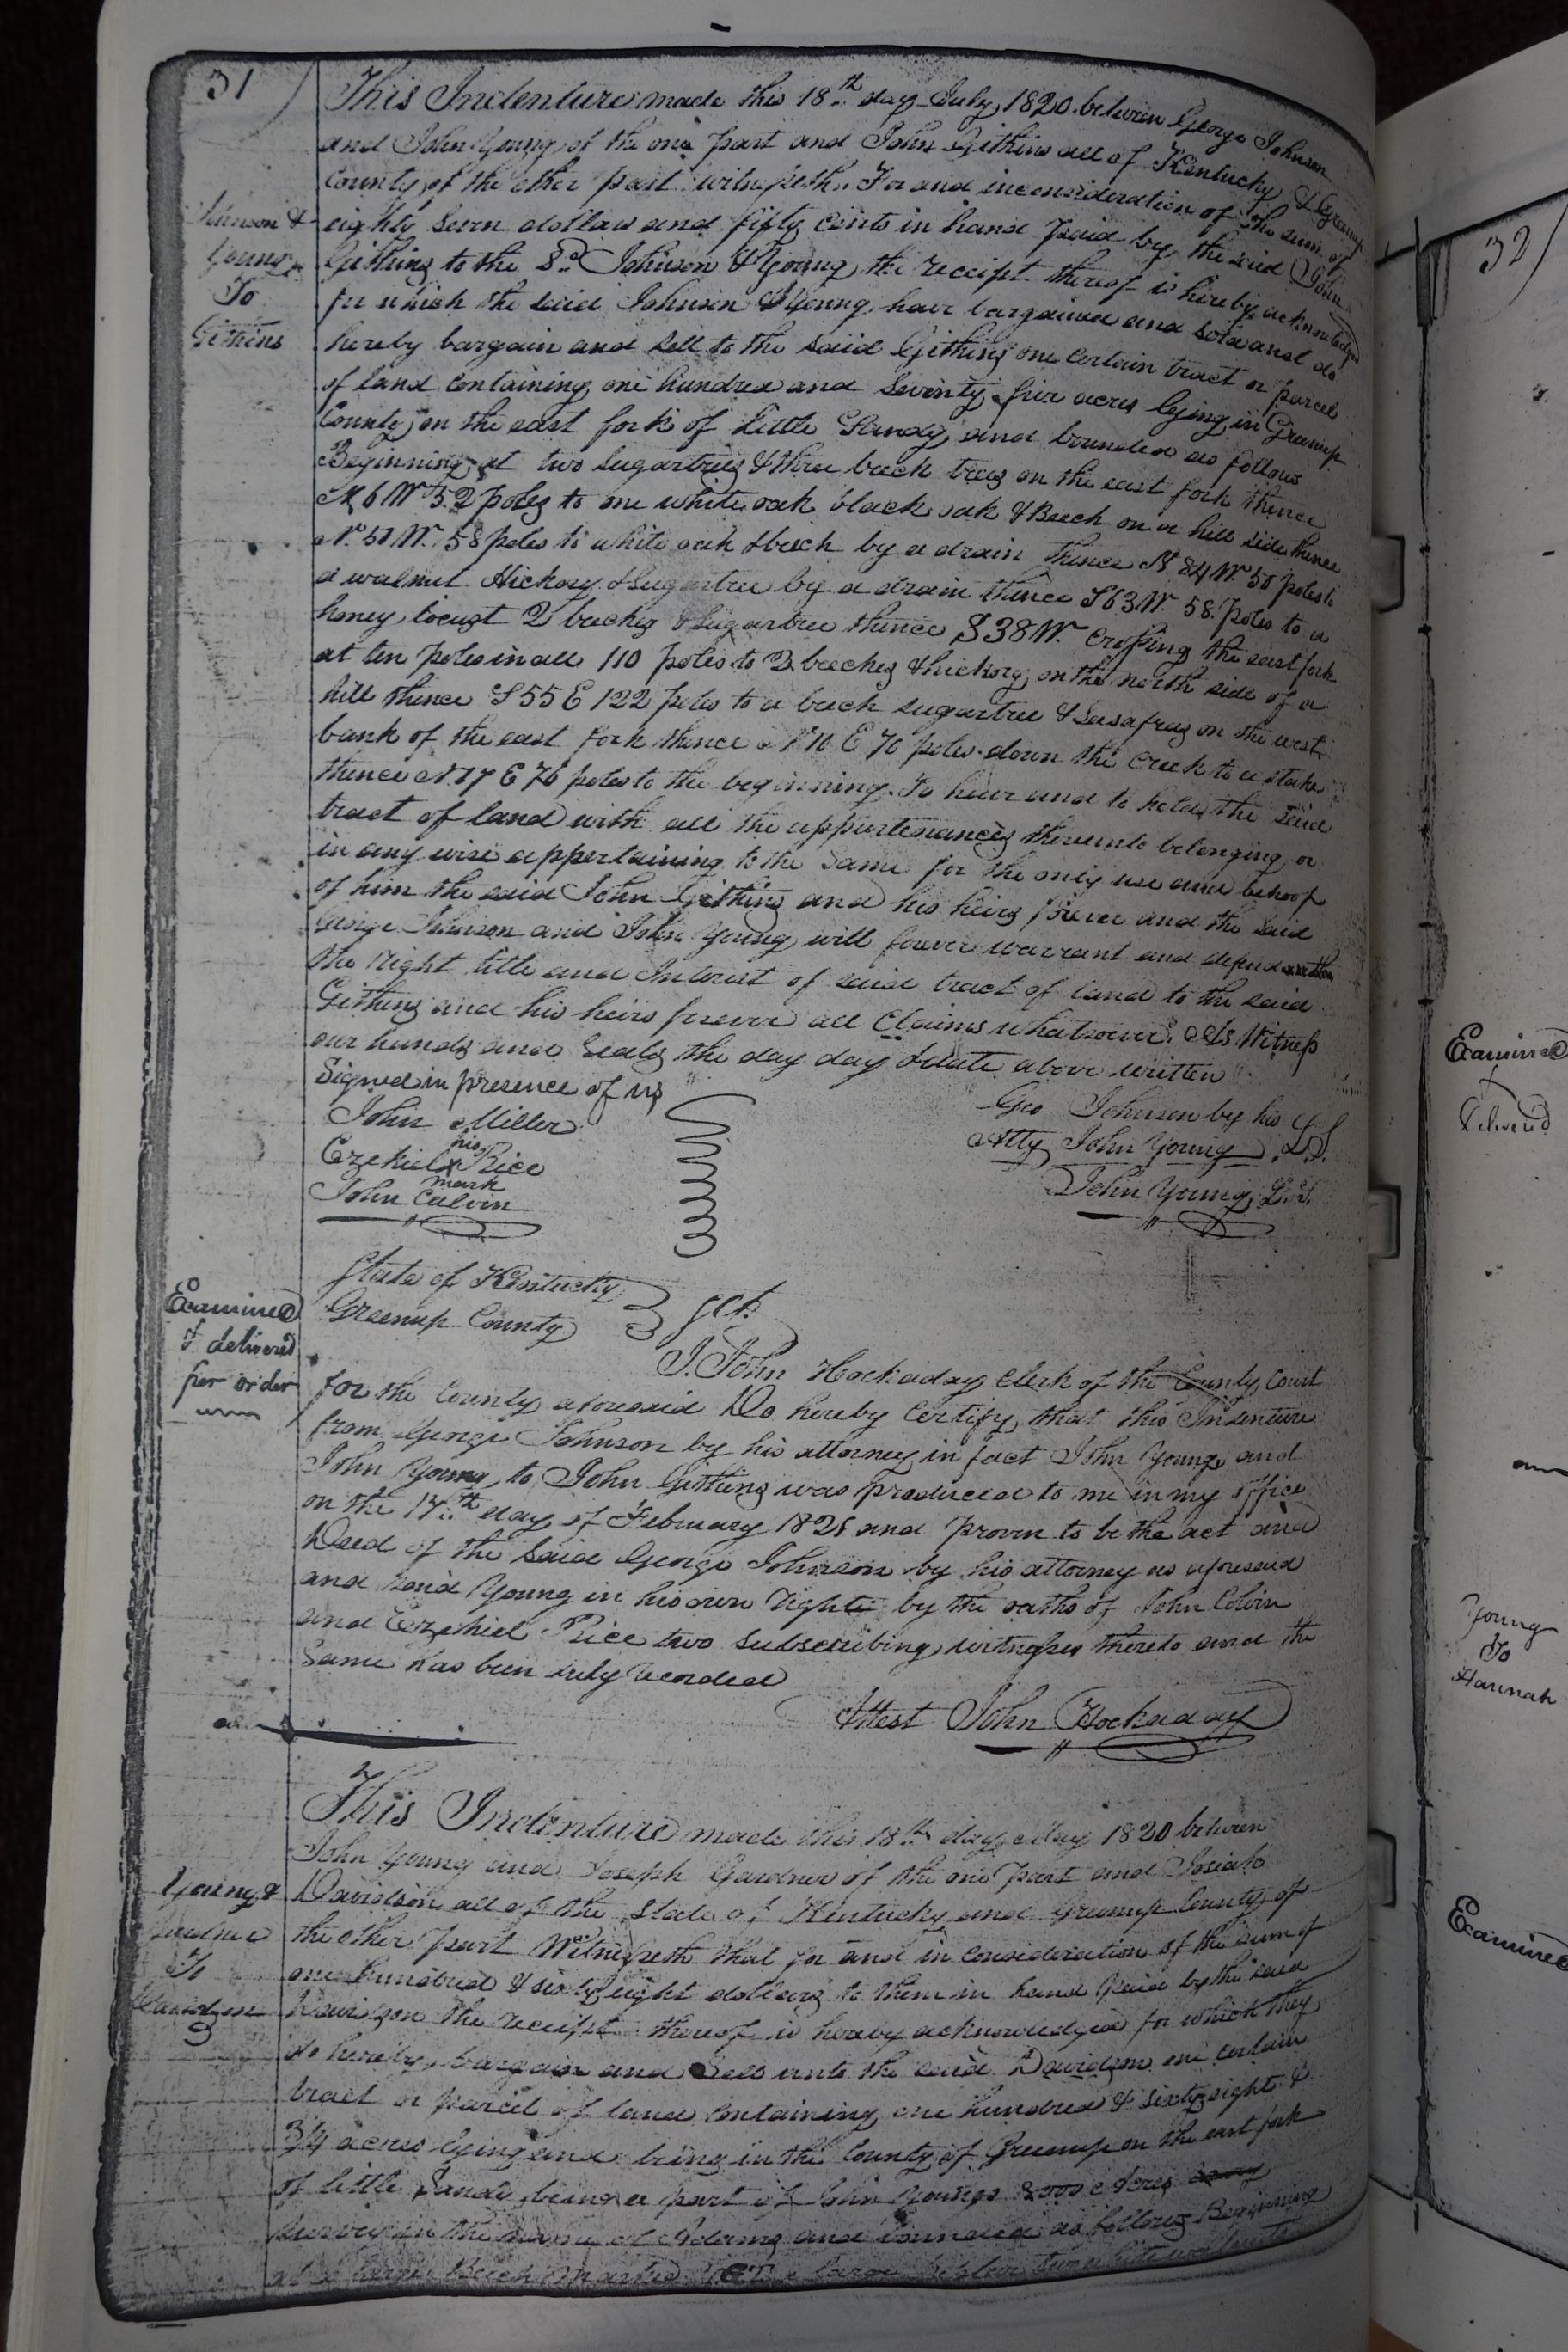 31
This Indenture made this 18th day July 1820 between George Johnson
and John Young of the one part and John Githins all of Kentucky & Greenup
County of the other part witnesseth. For and inconsideration of the sum of
eighty seven dollars and fifty cents in hand paid by the said John
Githins to the Sd. Johnson & Young the receipt thereof is hereby acknowledged
for which the said Johnson & Young have bargained and sold and do
hereby bargain and sell to the said Githins one certain tract or parcel
of land containing one hundred and seventy five acres lying in Greenup
County on the east fork of little Sandy and bounded as follows
Beginning at two Sugartrees & three beech trees on the east fork thence
N 6 W 52 poles to one white oak black oak & Beech on a hill side thence
N. 51 W. 58 poles to white oak & beech by a drain thence N 84 W. 50 poles to
a walnut Hickory & Sugartree by a drain thence S 63 W. 58 poles to a
honey locust 2 beeches & Sugartree thence S 38 W. Crossing the east fork
at ten poles in all 110 poles to 2 beeches & hickory on the north side of a
hill thence S 55 E 122 poles to a beech sugartree & Sasafras on the west
bank of the east fork thence N 10 E 70 poles down the creek to a stake
thence N 17 E 76 poles to the beginning. To have and to hold the said
tract of land with all the appurtenances thereunto belonging or
in any wise appertaining to the same for the only use and behoof
of him the said John Githins and his heirs forever and the said
George Johnson and John Young will forever warrant and defend
the right title and Interest of said tract of land to the said
Githins and his heirs forever all Claims whatsoever. As Witness
our hands and Seals the day day & date above written
Signed in presence of us
John Miller
Ezekiel his x mark Rice
John Calvin
Geo Johnson by his
Atty John Young L.S.
John Young L.S.
Johnson &
Young
To
Githins
State of Kentucky
Greenup County } sct.
Examined
& delivered
per order
I. John Hockaday Clerk of the County Court
for the County aforesaid Do hereby Certify that this Indenture
from George Johnson by his attorney in fact John Young and
John Young to John Githins was produced to me in my office
on the 17th day of February 1821 and proven to be the act and
Deed of the said George Johnson by his attorney as aforesaid
and said Young in his own right by the oaths of John Colvin
and Ezekiel Rice two subscribing witnesses thereto and the
Same has been duly recorded
Attest John Hockaday
This Indenture made this 18th day May 1820 between
John Young and Joseph Gardner of the one part and Josiah
Davidson all of the State of Kentucky and Greenup County of
the other part Witnesseth that for and in consideration of the sum of
one hundred & sixty eight dollars to them in hand paid by the said
Davidson the receipt thereof is hereby acknowledged for which they
do hereby bargain and Sell unto the said Davidson one certain
tract or parcel of land containing one hundred & sixty eight &
3/4 acres lying and being in the County of Greenup on the east fork
of little Sandy being a part of John Youngs 8000 Acres
Survey in the name of Adams and bounded as follows Beginning
at a large Beech Marked
Young &
Gardner
To
Davidson
32
Examined
Delivered
Young
To
Hannah
Examined